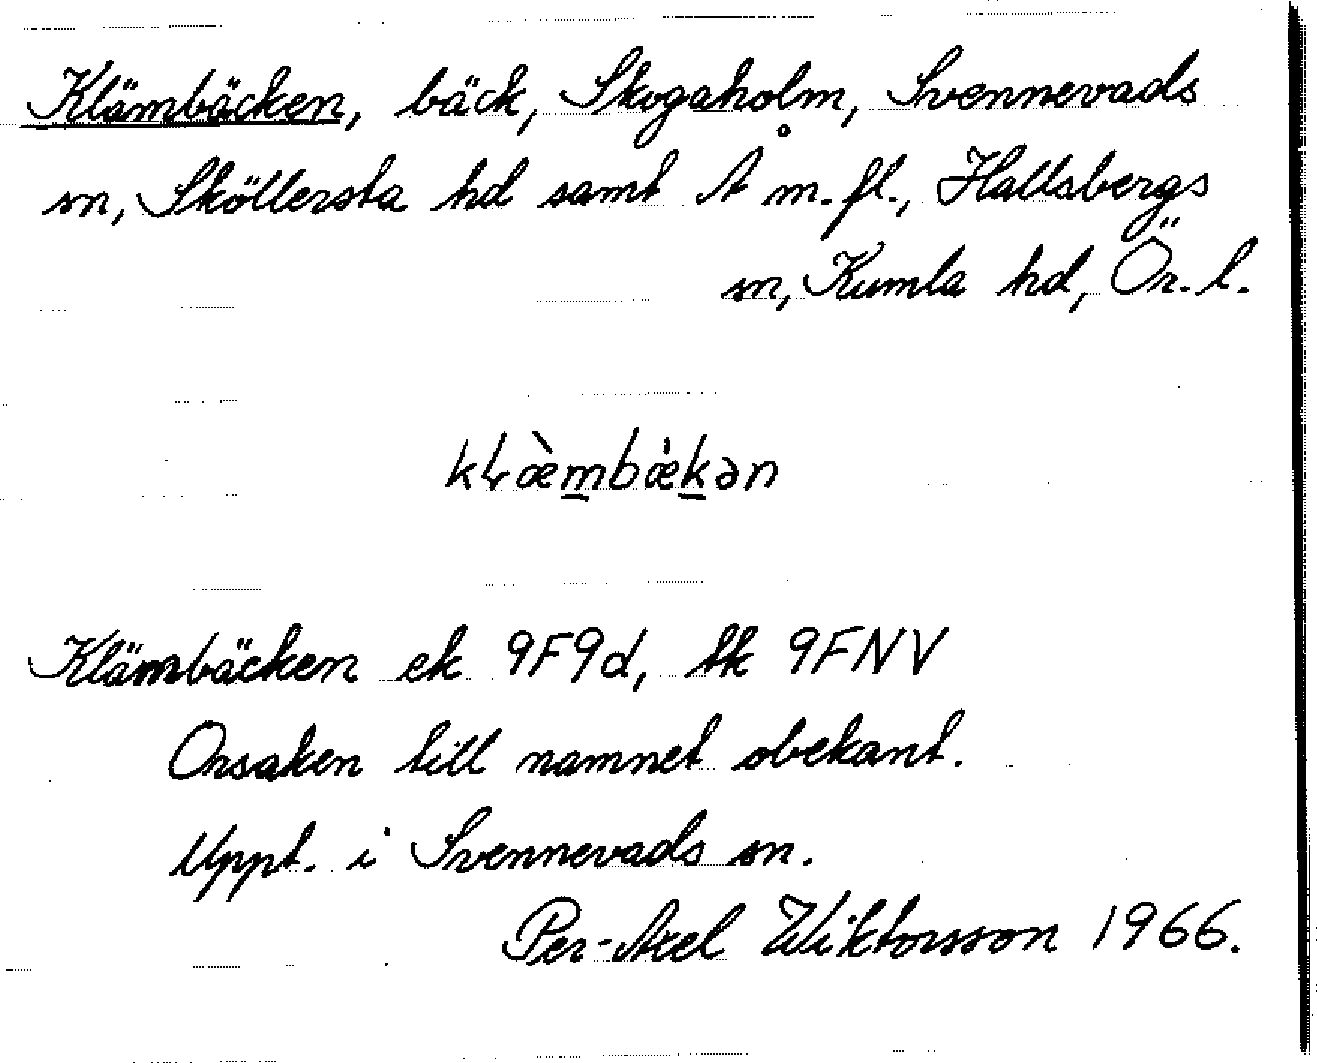 Klämbäcken, bäck, Skogaholm, Svennevads
sn, Sköllersta hd samt Å m. fl., Hallsbergs
sn, Kumla hd, Ör. l.
kɫæ̀m̱bǽḵən
Klämbäcken ek 9F9d, tk 9FNV
Orsaken till namnet obekant.
Uppt. i Svennevads sn.
Per-Axel Wiktorsson 1966.